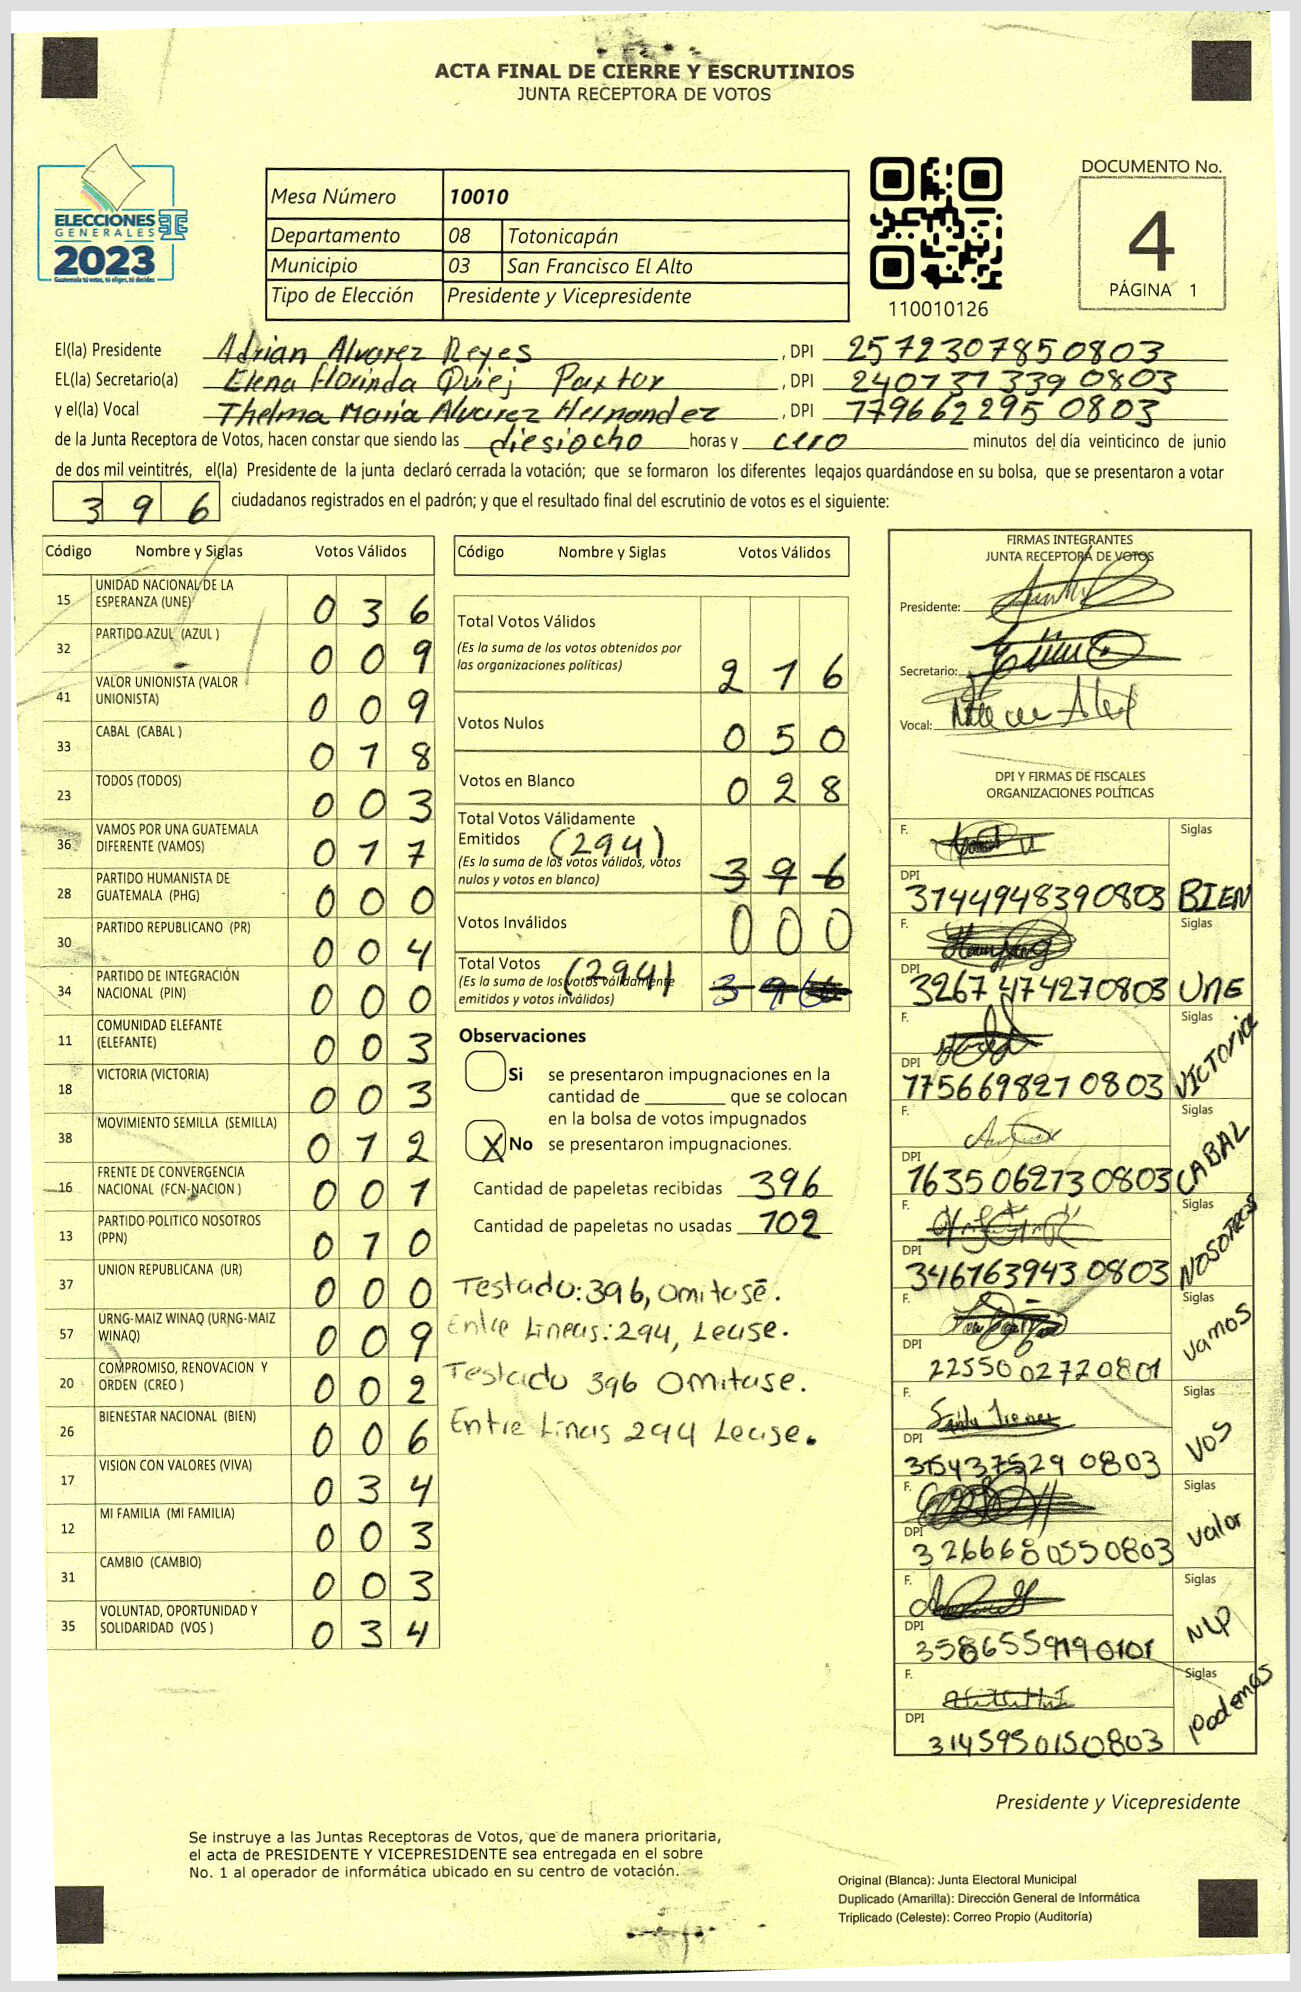 ACTA FINAL DE CIERRE Y ESCRUTINIOS
JUNTA RECEPTORA DE VOTOS
ELECCIONES
GENERALES
2023
Guatemala tú votas, tú eliges, tú decides
Mesa Número 10010
Departamento 08 Totonicapán
Municipio 03 San Francisco El Alto
Tipo de Elección Presidente y Vicepresidente
110010126
DOCUMENTO No.
4
PÁGINA 1
El(la) Presidente Adrian Alvarez Reyes , DPI 2572307850803
EL(la) Secretario(a) Elena Florinda Quiej Paxtor , DPI 2407373390803
y el(la) Vocal Thelma Maria Alvarez Hernandez , DPI 7796622950803
de la Junta Receptora de Votos, hacen constar que siendo las diesiocho horas y cero minutos del día veinticinco de junio
de dos mil veintitrés, el(la) Presidente de la junta declaró cerrada la votación; que se formaron los diferentes legajos guardándose en su bolsa, que se presentaron a votar
396 ciudadanos registrados en el padrón; y que el resultado final del escrutinio de votos es el siguiente:
Código Nombre y Siglas Votos Válidos
15 UNIDAD NACIONAL DE LA ESPERANZA (UNE) 036
32 PARTIDO AZUL (AZUL ) 009
41 VALOR UNIONISTA (VALOR UNIONISTA) 009
33 CABAL (CABAL ) 018
23 TODOS (TODOS) 003
36 VAMOS POR UNA GUATEMALA DIFERENTE (VAMOS) 017
28 PARTIDO HUMANISTA DE GUATEMALA (PHG) 000
30 PARTIDO REPUBLICANO (PR) 004
34 PARTIDO DE INTEGRACIÓN NACIONAL (PIN) 000
11 COMUNIDAD ELEFANTE (ELEFANTE) 003
18 VICTORIA (VICTORIA) 003
38 MOVIMIENTO SEMILLA (SEMILLA) 012
16 FRENTE DE CONVERGENCIA NACIONAL (FCN-NACION ) 001
13 PARTIDO POLITICO NOSOTROS (PPN) 010
37 UNION REPUBLICANA (UR) 000
57 URNG-MAIZ WINAQ (URNG-MAIZ WINAQ) 009
20 COMPROMISO, RENOVACION Y ORDEN (CREO ) 002
26 BIENESTAR NACIONAL (BIEN) 006
17 VISION CON VALORES (VIVA) 034
12 MI FAMILIA (MI FAMILIA) 003
31 CAMBIO (CAMBIO) 003
35 VOLUNTAD, OPORTUNIDAD Y SOLIDARIDAD (VOS ) 034
Código Nombre y Siglas Votos Válidos
Total Votos Válidos
(Es la suma de los votos obtenidos por
las organizaciones políticas) 216
Votos Nulos 050
Votos en Blanco 028
Total Votos Válidamente
Emitidos (294)
(Es la suma de los votos válidos, votos
nulos y votos en blanco) 396
Votos Inválidos 000
Total Votos (294)
(Es la suma de los votos válidamente
emitidos y votos inválidos) 396
Observaciones
Si se presentaron impugnaciones en la
cantidad de ________ que se colocan
en la bolsa de votos impugnados
X No se presentaron impugnaciones.
Cantidad de papeletas recibidas 396
Cantidad de papeletas no usadas 102
Testado: 396, Omitase.
Entre Lineas: 294, Lease.
Testado 396 Omitase.
Entre Lineas 294 Lease.
FIRMAS INTEGRANTES
JUNTA RECEPTORA DE VOTOS
Presidente:
Secretario:
Vocal:
DPI Y FIRMAS DE FISCALES
ORGANIZACIONES POLÍTICAS
F. Siglas
DPI 3144948390803 BIEN
F. Siglas
DPI 3267474270803 UNE
F. Siglas
DPI 1756698270803 VICTORIA
F. Siglas
DPI 1635062730803 CABAL
F. Siglas
DPI 3461639430803 NOSOTROS
F. Siglas
DPI 2255002720801 Vamos
F. Siglas
DPI 3154375290803 VOS
F. Siglas
DPI 3266680550803 Valor
F. Siglas
DPI NLP
F. Siglas
DPI 3145950150803 Podemos
Presidente y Vicepresidente
Se instruye a las Juntas Receptoras de Votos, que de manera prioritaria,
el acta de PRESIDENTE Y VICEPRESIDENTE sea entregada en el sobre
No. 1 al operador de informática ubicado en su centro de votación.
Original (Blanca): Junta Electoral Municipal
Duplicado (Amarilla): Dirección General de Informática
Triplicado (Celeste): Correo Propio (Auditoría)